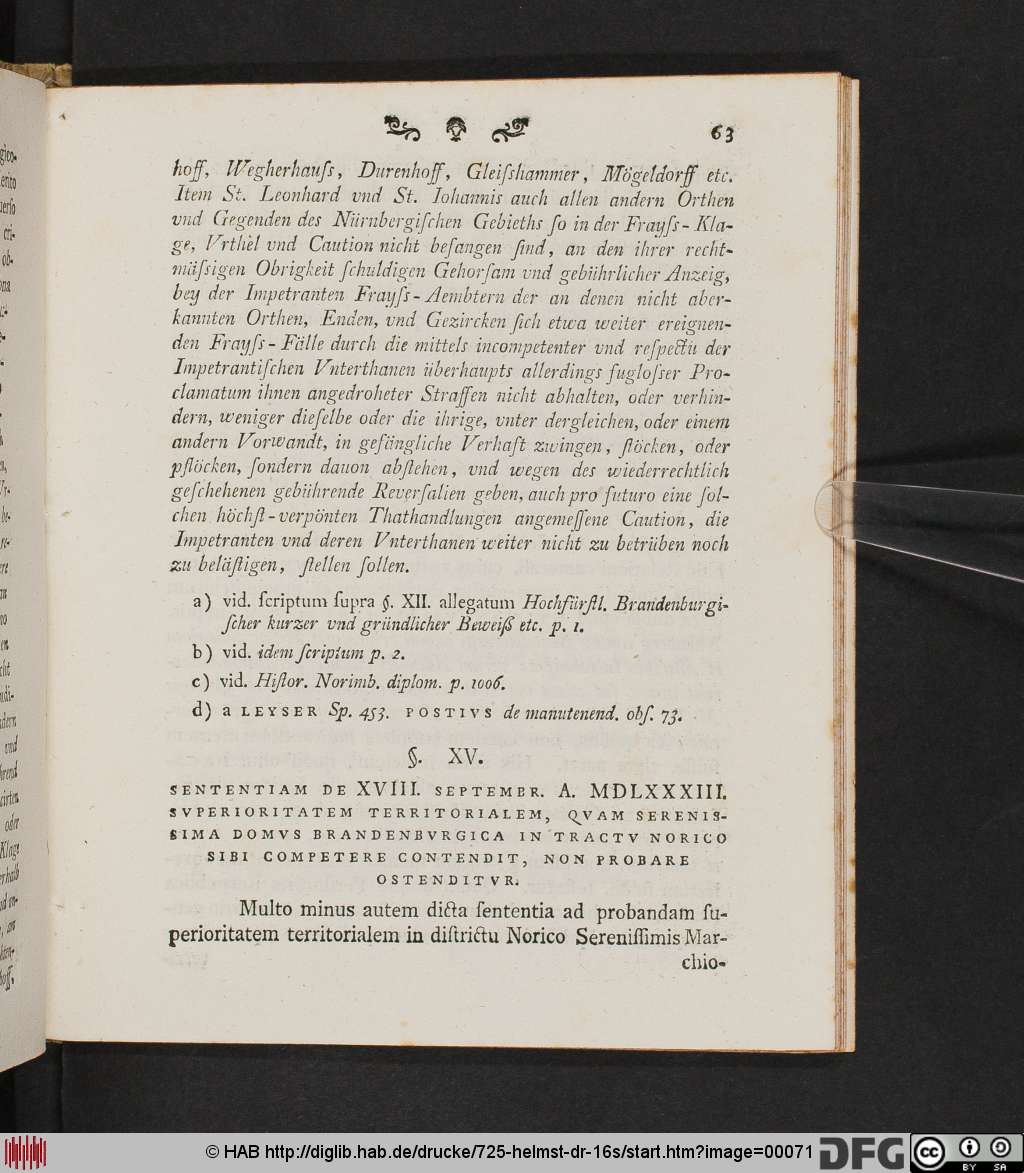 63
hoff, Wegherhauſs, Durenhoff, Gleiſshammer, Mögeldorff etc.
Item St. Leonhard vnd St. Iohannis auch allen andern Orthen
vnd Gegenden des Nürnbergiſchen Gebieths ſo in der Frayſs-Kla-
ge, Vrthel vnd Caution nicht befangen ſind, an den ihrer recht-
mäſsigen Obrigkeit ſchuldigen Gehorſam vnd gebührlicher Anzeig,
bey der Impetranten Frayſs-Aembtern der an denen nicht aber-
kannten Orthen, Enden, vnd Gezircken ſich etwa weiter ereignen-
den Frayſs-Fälle durch die mittels incompetenter vnd reſpectu der
Impetrantiſchen Vnterthanen überhaupts allerdings fugloſser Pro-
clamatum ihnen angedroheter Straffen nicht abhalten, oder verhin-
dern, weniger dieſelbe oder die ihrige, vnter dergleichen, oder einem
andern Vorwandt, in gefängliche Verhaft zwingen, ſtöcken, oder
pflöcken, ſondern dauon abſtehen, vnd wegen des wiederrechtlich
geſchehenen gebührende Reverſalien geben, auch pro futuro eine ſol-
chen höchſt-verpönten Thathandlungen angemeſſene Caution, die
Impetranten vnd deren Vnterthanen weiter nicht zu betrüben noch
zu beläſtigen, ſtellen ſollen.
a) vid. ſcriptum ſupra §. XII. allegatum Hochfürſtl. Brandenburgi-
ſcher kurzer vnd gründlicher Beweiß etc. p. 1.
b) vid. idem ſcriptum p. 2.
c) vid. Hiſtor. Norimb. diplom. p. 1006.
d) a LEYSER Sp. 453. POSTIVS de manutenend. obſ. 73.
§. XV.
SENTENTIAM DE XVIII. SEPTEMBR. A. MDLXXXIII.
SVPERIORITATEM TERRITORIALEM, QVAM SERENIS-
SIMA DOMVS BRANDENBVRGICA IN TRACTV NORICO
SIBI COMPETERE CONTENDIT, NON PROBARE
OSTENDITVR.
Multo minus autem dicta ſententia ad probandam ſu-
perioritatem territorialem in diſtrictu Norico Sereniſſimis Mar-
chio-
© HAB http://diglib.hab.de/drucke/725-helmst-dr-16s/start.htm?image=00071
DFG
cc
BY SA